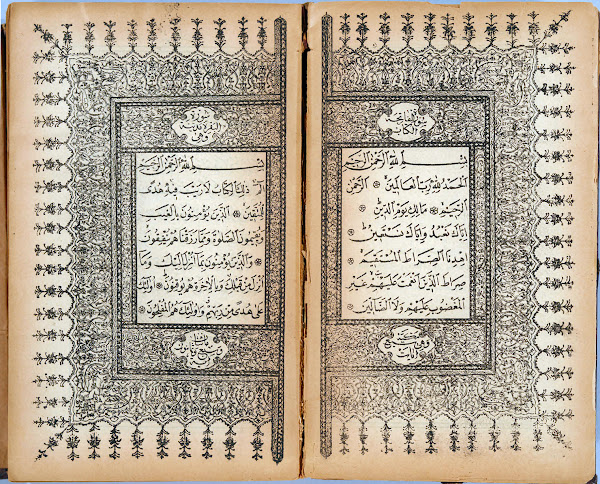 سورة فاتحة
الكتاب
بسم الله الرحمن الرحيم
الحمد لله رب العالمين الرحمن
الرحيم مالك يوم الدين
اياك نعبد واياك نستعين
اهدنا الصراط المستقيم
صراط الذين انعمت عليهم غير
المغضوب عليهم ولا الضالين
وهي سبع
آيات
سورة
البقرة مدنية
بسم الله الرحمن الرحيم
الم ذلك الكتاب لا ريب فيه هدى
للمتقين الذين يؤمنون بالغيب
ويقيمون الصلوة ومما رزقناهم ينفقون
والذين يؤمنون بما انزل اليك وما
انزل من قبلك وبالاخرة هم يوقنون اولئك
على هدى من ربهم واولئك هم المفلحون